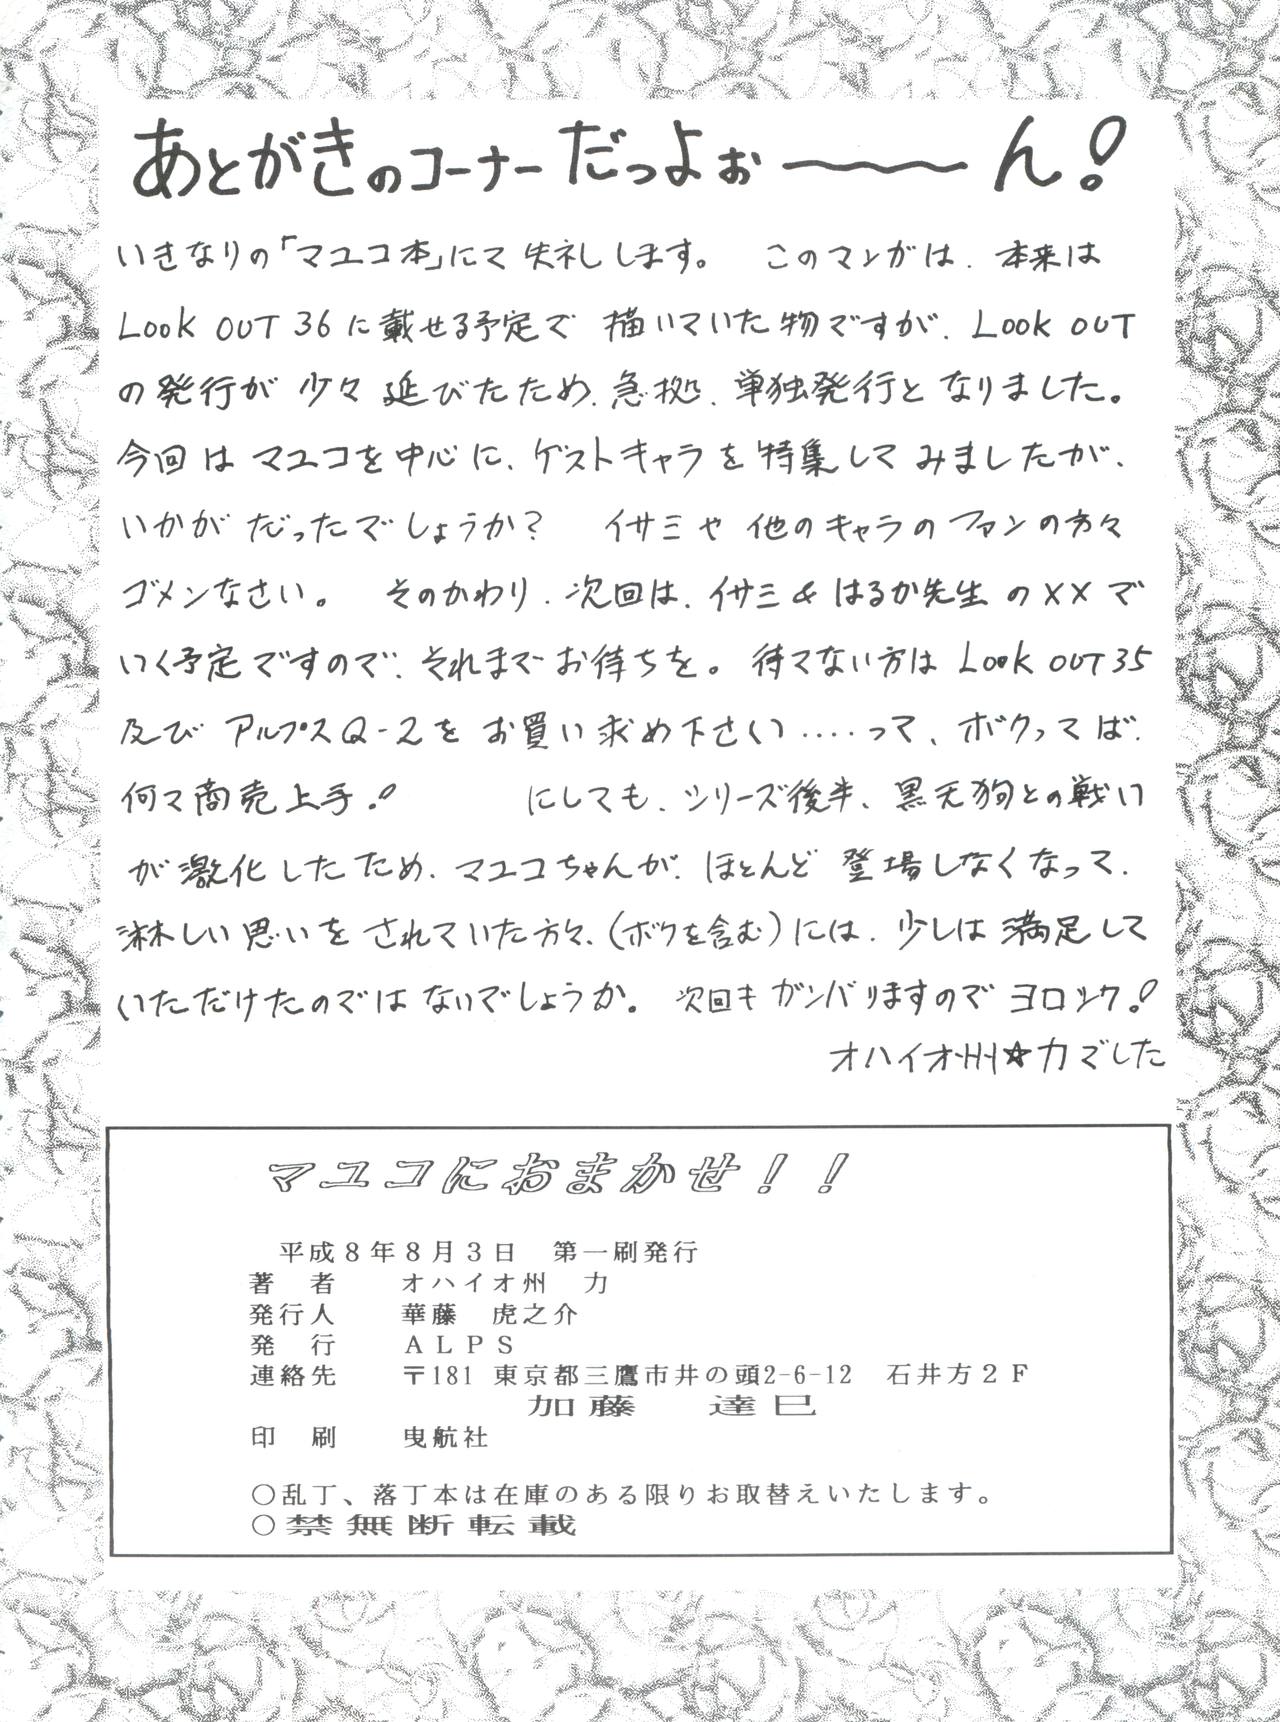 あとがきのコーナーだっよぉ〜〜ん!
いきなりの「マユコ本」にて失礼します。 このマンガは、本来は
LOOK OUT 36に載せる予定で 描いていた物ですが、LOOK OUT
の発行が少々延びたため、急拠、単独発行となりました。
今回はマユコを中心に、ゲストキャラを特集してみましたが、
いかがだったでしょうか? イサミや他のキャラのファンの方々
ゴメンなさい。 そのかわり、次回は、イサミ&はるか先生の××で
いく予定ですので、それまでお待ちを。待てない方はLOOK OUT35
及びアルプスQ-2をお買い求め下さい‥‥って、ボクってば、
何て商売上手! にしても、シリーズ後半、黒天狗との戦い
が激化したため、マユコちゃんが、ほとんど登場しなくなって、
淋しい思いをされていた方々、(ボクを含む)には、少しは満足して
いただけたのではないでしょうか。 次回もガンバりますのでヨロシク!
オハイオ州☆力でした
マユコにおまかせ!!
平成8年8月3日 第一刷発行
著 者 オハイオ州 力
発行人 華藤 虎之介
発 行 ALPS
連絡先 〒181 東京都三鷹市井の頭2-6-12 石井方2F
加藤 達巳
印 刷 曳航社
○乱丁、落丁本は在庫のある限りお取替えいたします。
○禁無断転載